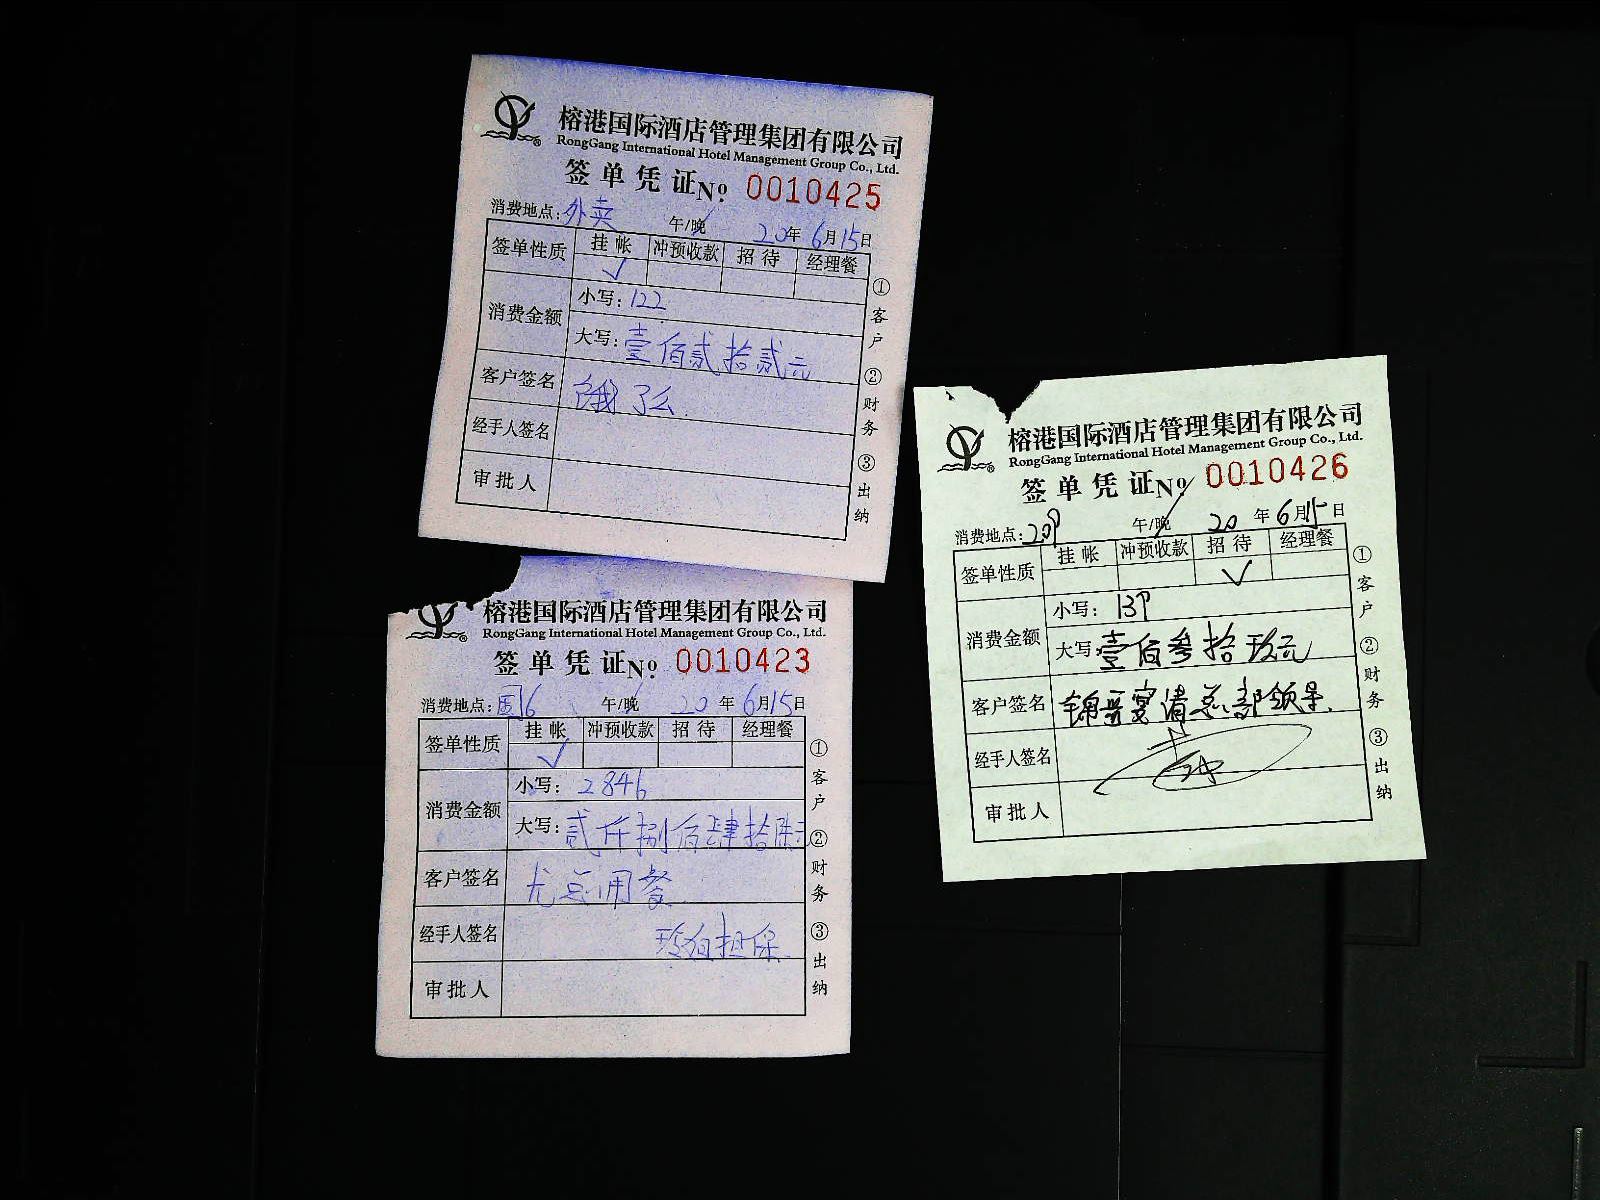 榕港国际酒店管理集团有限公司
RongGang International Hotel Management Group Co., Ltd.
签单凭证 No. 0010425
消费地点: 外卖 午/晚 20年 6月15日
签单性质 挂帐 冲预收款 招待 经理餐
✓
消费金额 小写: 122
大写: 壹佰贰拾贰元
客户签名 饿了么
经手人签名
审批人
①客户 ②财务 ③出纳
榕港国际酒店管理集团有限公司
RongGang International Hotel Management Group Co., Ltd.
签单凭证 No. 0010423
消费地点: 国6 午/晚 20年 6月15日
签单性质 挂帐 冲预收款 招待 经理餐
✓
消费金额 小写: 2846
大写: 贰仟捌佰肆拾陆
客户签名 尤总用餐
经手人签名 担保
审批人
①客户 ②财务 ③出纳
榕港国际酒店管理集团有限公司
RongGang International Hotel Management Group Co., Ltd.
签单凭证 No. 0010426
消费地点: 209 午/晚 20年 6月15日
签单性质 挂帐 冲预收款 招待 经理餐
✓
消费金额 小写: 139
大写: 壹佰叁拾玖元
客户签名 锦晋宴请总部领导.
经手人签名
审批人
①客户 ②财务 ③出纳